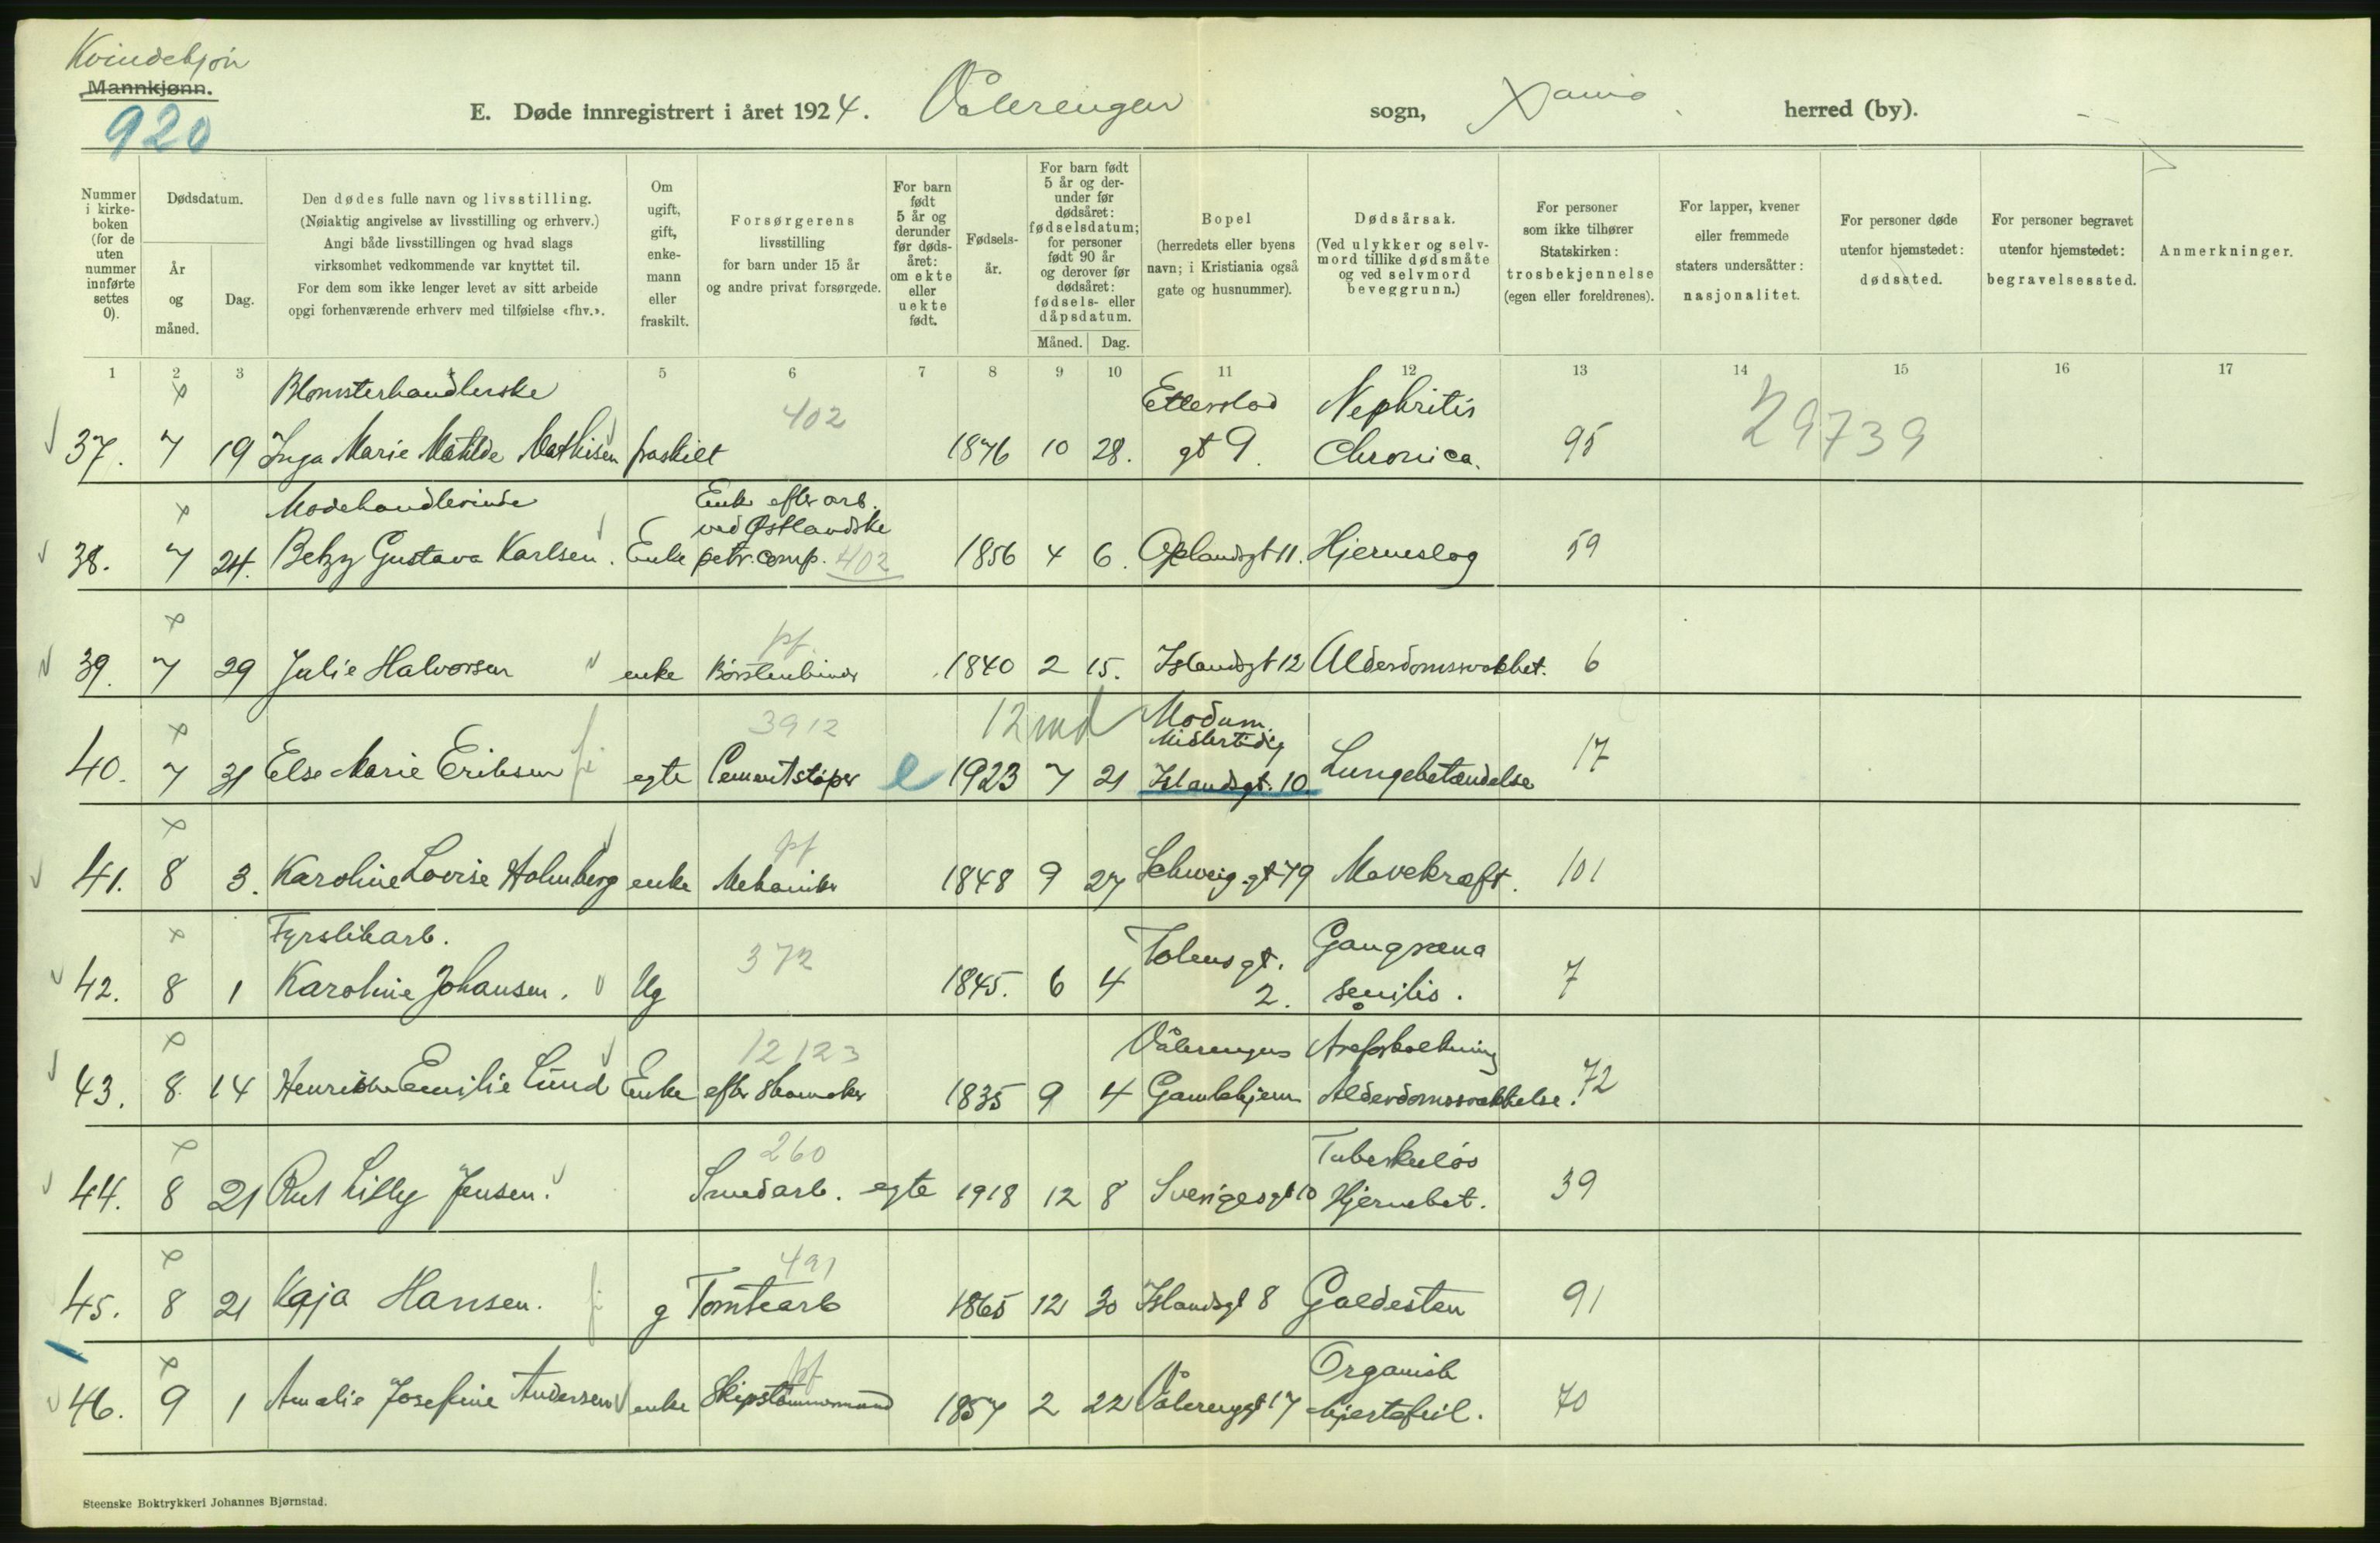 Kvindekjøn
Mannkjønn.
920
E. Døde innregistrert i året 1924. Vålerengen sogn, Xania herred (by).
Nummer i kirke-boken (for de uten nummer innførte settes 0).
Dødsdatum.
År og måned.
Dag.
Den dødes fulle navn og livsstilling.
(Nøiaktig angivelse av livsstilling og erhverv.)
Angi både livsstillingen og hvad slags
virksomhet vedkommende var knyttet til.
For dem som ikke lenger levet av sitt arbeide
opgi forhenværende erhverv med tilføielse «fhv.».
Om ugift, gift, enke-mann eller fraskilt.
Forsørgerens livsstilling
for barn under 15 år
og andre privat forsørgede.
For barn født 5 år og derunder før døds-året: om ekte eller uekte født.
Fødsels-år.
For barn født 5 år og der-under før dødsåret: fødselsdatum; for personer født 90 år og derover før dødsåret: fødsels- eller dåpsdatum.
Måned. Dag.
Bopel
(herredets eller byens
navn; i Kristiania også
gate og husnummer).
Dødsårsak.
(Ved ulykker og selv-
mord tillike dødsmåte
og ved selvmord
beveggrunn.)
For personer
som ikke tilhører
Statskirken:
trosbekjennelse
(egen eller foreldrenes).
For lapper, kvener
eller fremmede
staters undersåtter:
nasjonalitet.
For personer døde
utenfor hjemstedet:
dødssted.
For personer begravet
utenfor hjemstedet:
begravelsessted.
Anmerkninger.
1 2 3 5 6 7 8 9 10 11 12 13 14 15 16 17
Blomsterhandlerske 402 Etterstad Nephritis 29739
37. 7 19 Inga Marie Matilde Mathisen fraskilt 1876 10 28. gt 9. Chronica. 95
Modehandlerinde Enke efter arb.
ved Østlandske
38. 7 24. Betzy Gustava Karlsen. Enke petr. comp. 402 1856 4 6. Oplandsgt 11. Hjerneslag 59
pf
39. 7 29 Julie Halvorsen enke Børstenbinder 1840 2 15. Islandsgt 12 Alderdomssvakhet. 6
3912 12 md Modum.
Midlertidig
40. 7 31 Else Marie Eriksen fi egte Cementstøper e 1923 7 21 Islandsgt. 10. Lungebetændelse 17
pf
41. 8 3. Karoline Lovise Holmberg enke Mekaniker 1848 9 27 Schweig.gt 79 Mavekræft. 101
Fyrstikarb. 372 Tolensgt. Gangræna
42. 8 1 Karoline Johansen. Ug 1845. 6 4 2. senilis. 7
12123 Vålerengens Areforkalkning
43. 8. 14 Henrikke Emilie Lund Enke efter skomaker 1835 9 4 Gamlehjem Alderdomssvakkelse. 72
260 Tuberkuløs
44. 8 21 Rut Lilly Jensen. Smedarb. egte 1918 12 8 Sverigesgt 10 Hjernebet. 39
491
45. 8 21 Kaja Hansen. fi g Tomtearb 1865 12 30 Islandsgt 8 Galdesten 91
pf Organisk
46. 9 1 Amalie Josefine Andersen enke Skipstømmermand 1857 2 22 Vålerenggt 17 hjertefeil. 70
Steenske Boktrykkeri Johannes Bjørnstad.